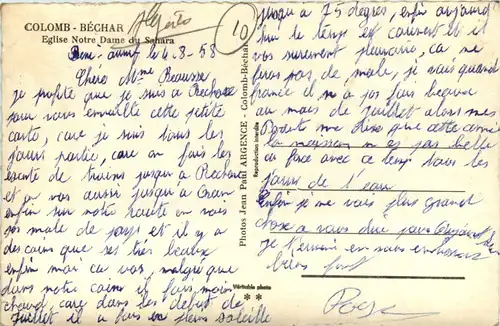 COLOMB - BÉCHAR
Eglise Notre Dame du Sahara
Algérie
10
Beni-ounif le 6.8.58
Chere Mme
Je profite que je suis a Bechar
pour vous envoillé cette petite
carte, care je suis tous les
jours partie, care on fais les
escorte de trains jusqu'a Bechar
et on vas aussi jusqu'a Oran
enfin sur notre route on vois
pas male de pays et il y a
des coins que ses très beaux
enfin moi ca vas, malgré que
dans notre coins il fais moin
chaud, care dans les debut de
Juillet il a fais en pleins soleille
jusqu'a 75 degres, enfin aujourd
hui le temp est couvert et il
vas surement pleuvoire, ca ne
feras pas de male, je vois quand
france il n'a pas fais beaux
au mois de juillet alors mes
Parents me dise que cette année
la moisson n'es pas belle
a face avec ce temp tous les
jours de l'eau
Enfin je ne vois plus grand
chose a vous dire pour aujourd'hui
je t'ecrirai en vous embrassant
bien fort
Photos Jean Paul ARGENCE - Colomb-Béchar
Reproduction interdite
Véritable photo